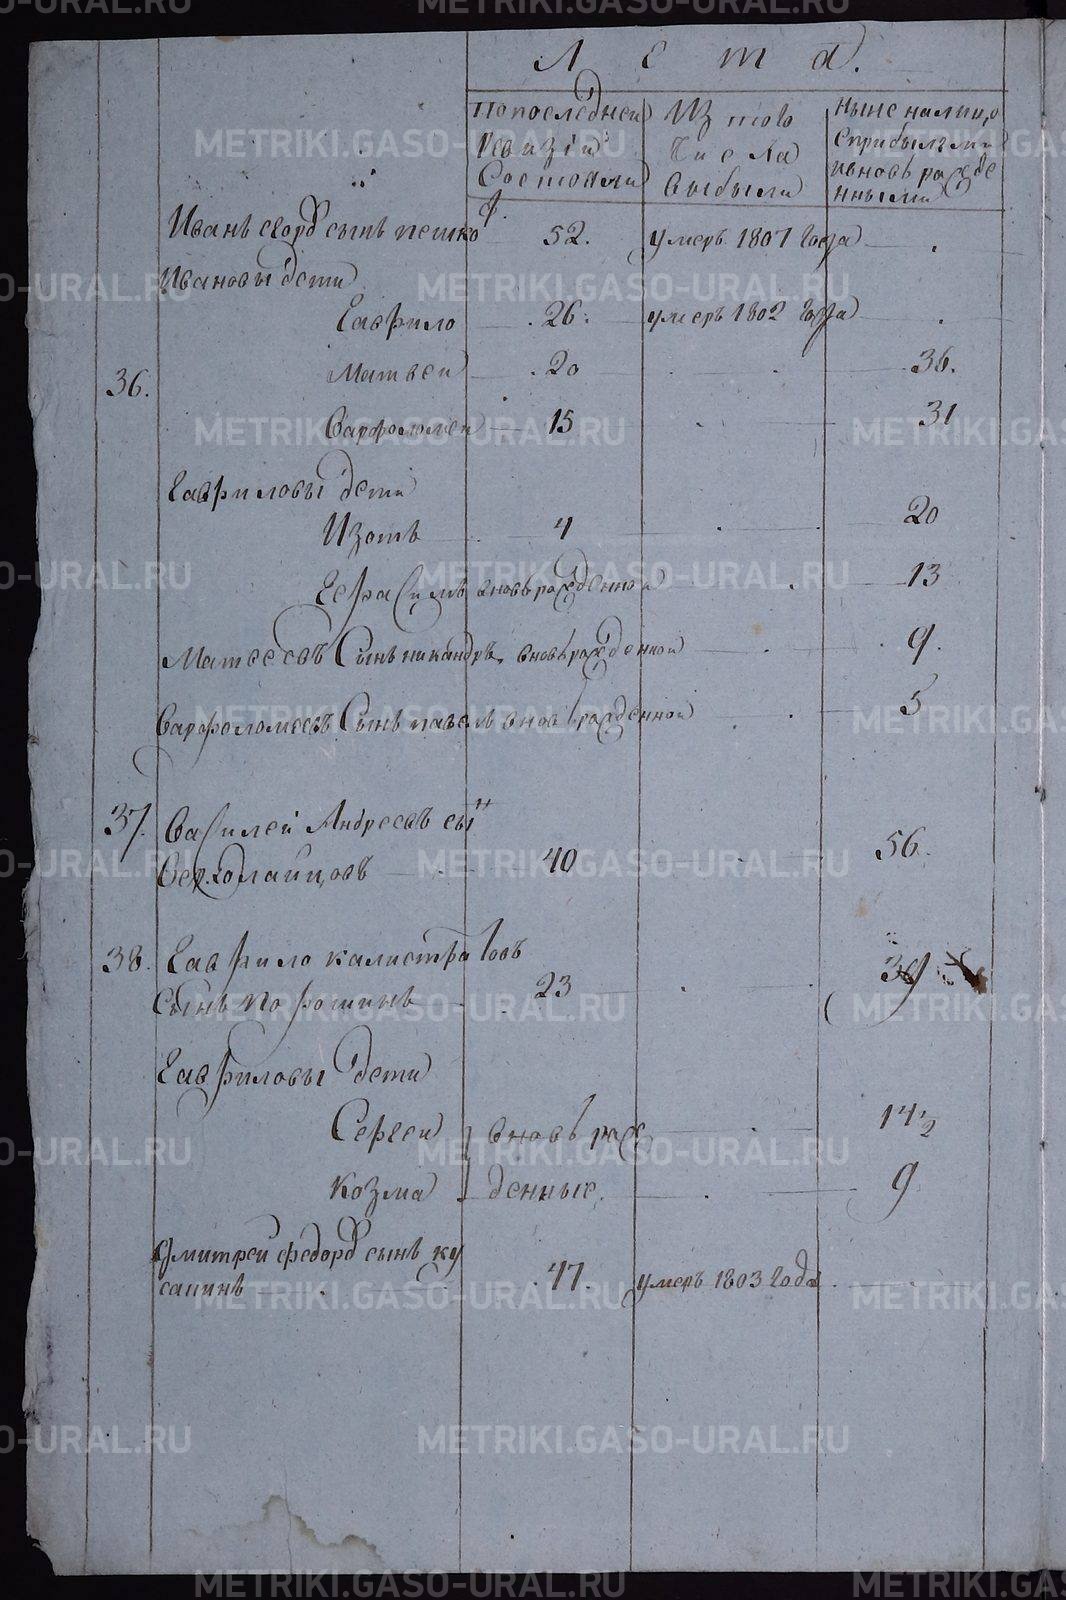 Лета.
По последней ревизiи состояли
Из того числа выбыли
Ныне налицо с прибылыми и вновь рожденными
Иванъ сын пешко 52. умеръ 1807 года
Ивановы дети
Гаврило 26. умеръ 1802 года
36. Матвеи 20 36.
Варфоломеи 15 31
Гавриловы дети
Изотъ 4 20
Герасимъ вновь рожденнои 13
Матвеевъ сынъ никандръ вновь рожденнои 9.
Варфоломеевъ сынъ павелъ вновь рожденнои 5
37. Василей Андреевъ сын 
40 56.
38. Гаврило калистратовъ
сынъ Порошинъ 23 39
Гавриловы дети
Сергеи вновь рож 14 1/2
Козма денные. 9
Дмитреи федоро сынъ ку
сакинъ 47. умеръ 1803 года
METRIKI.GASO-URAL.RU